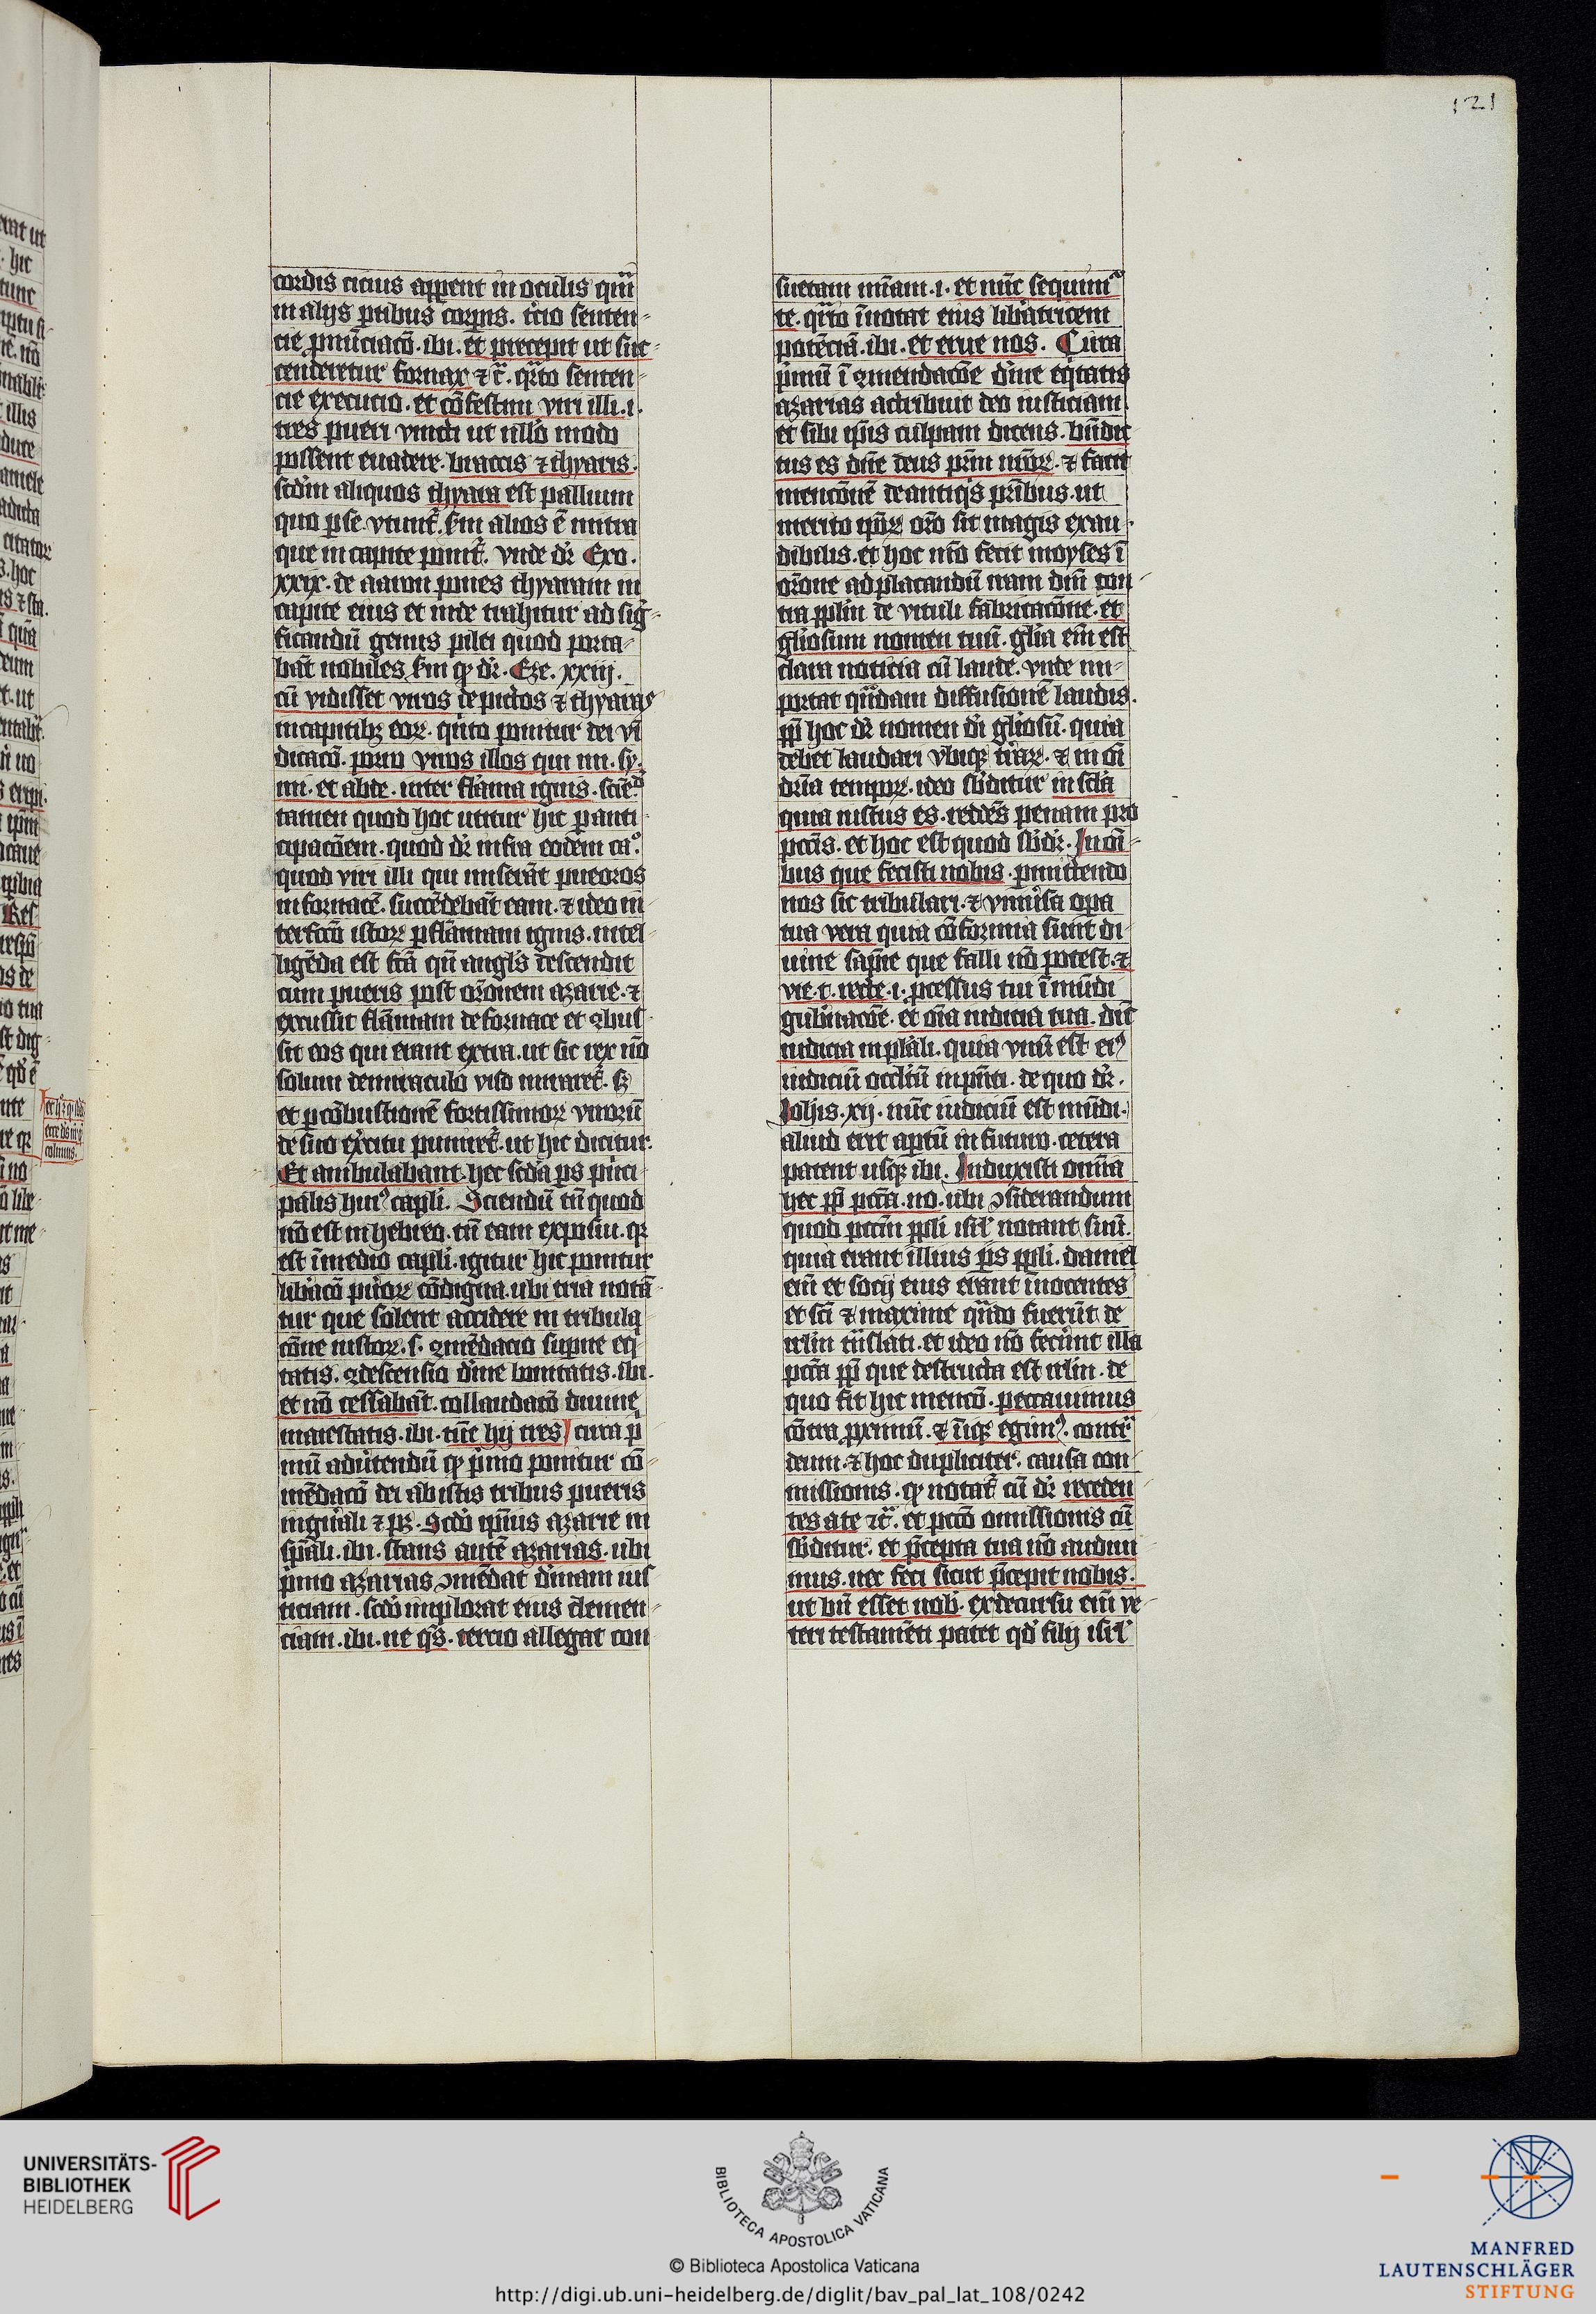 121
cordis citius apparent in oculis quam
in alijs ptibus corporis. tercio senten-
cie pnunciacō. ibi. et precepit ut suc-
cenderetur fornax ⁊ c̄. quarto senten-
cie execucio. et cōfestim viri illi. i.
tres pueri vincti ut nllo modo
possent euadere. braccis ⁊ thyaris.
scdm aliquos thyara est pallium
quo pse vtunt. scdm alios ē mitra
que in capite ponit. vnde dr̄ Exo.
xxix. de aaron pones thyaram in
capite eius et inde trahitur ad sig-
ficandū genus pilei quod porta-
bāt nobiles scdm qd dr̄. Eze. xxiij.
cū vidisset viros depictos ⁊ thyaras
in capitibꝫ eoꝝ. quito ponitur dei vi
dicacō. porro viros illos qui mi. sy.
mi. et abde. inter flāma ignis. sciēd
tamen quod hoc utitur hic p anti
cipacōem. quod dr̄ infra eodem ca°.
quod viri illi qui miserāt pueros
in fornacē. succēdebāt eam. ⁊ ideo in
terfctō istoꝝ p flāmam ignis. intel-
ligēda est fcā qn̄ angl's descendit
cum pueris post orōnem azarie. ⁊
excussit flāmam de fornace et 9bus
sit eos qui erant extra. ut sic rex nō
solum de miraculo viso miraret. sꝫ
et p cōbustionē fortissimoꝝ viroꝝ
de suo exercitu puniret. ut hic dicitur.
Et ambulabant. hec scda ps pnci
palis huiꝰ capli. Sciendū tn̄ quod
nō est in hebreo. tn̄ eam exposui. qꝛ
est ī medio capli. igitur hic ponitur
libacō pueroꝝ cōdigna. ubi tria notā-
tur que solent accidere in tribula
cōne iustoꝝ. s. 9mēdacio supne eq
tatis. 9descensio diuine bonitatis. ibi.
et nō cessabāt. collaudacō diuine
maiestatis. ibi. tūc hij tres circa p
mū aduertendū qd pmo ponitur cō-
mēdacō dei ab istis tribus pueris
in gn̄ali ⁊ pꝫ. Scdo ipius azarie in
spāli. ibi. stans autē azarias. ubi
pmo azarias 9mēdat diuinam ius
ticiam. scdo implorat eius clemen-
ciam. ibi. ne qs. tercio allegat con
suetam miam. i. et nūc sequimꝰ
te. quarto īnotat eius libatricem
potēciā. ibi. et erue nos. Circa
pmū ī 9mendacōe diuine eqtatis
azarias attribuit deo iusticiam
et sibi ipis culpam dicens. bn̄dic
tus es dn̄e deus prm nr̄oꝝ. ⁊ facit
mencōnē de antiqs pribus. ut
merito ipoꝝ orō sit magis exau-
dibilis. et hoc mō fecit moyses ī
orōne ad placandū iram dni con-
tra pplm de vituli fabricacōne. et
gliosum nomen tuū. glia em̄ est
clara noticia cū laude. vnde im-
portat quādam diffusionē laudis.
ppt hoc dr̄ nomen dei gliosū. quia
debet laudari vbiqꝫ trāꝝ. ⁊ in oi
dria tempoꝝ. ideo sbditur in scla
quia iustus es. reddēs penam pro
pctis. et hoc est quod sbdr̄. In oi-
bus que fecisti nobis. pmittendo
nos sic tribulari. ⁊ vniuersa opa
tua vera quia cōformia sunt di-
uine sapie que falli nō potest. ⁊
vie. t. recte. i. pcessus tui ī mūdi
gubnacōe. et oīa iudicia tua. dic̄
iudicia in plali. quia vnū est eiꝰ
iudiciū occltū in pn̄ti. de quo dr̄.
Johis. xij. nūc iudiciū est mūdi.
aliud erit aptū in futuro. cetera
patent usqꝫ ibi. Induxisti omīa
hec ppt pcta. no. ubi 9siderandum
quod pctm ppli isrl notant suū.
quia erant illius ps ppli. daniel
em̄ et socij eius erant īnocentes
et sci ⁊ maxime qn̄do fuerūt de
irlm trāslati. et ideo nō fecerunt illa
pcta ppt que destructa est irlm. de
quo fit hic mencō. peccauimus
cōtra proximū. ⁊ īiqꝫ egimꝰ. contra
deum. ⁊ hoc dupliciter. causa com-
missionis. qd notat cū dr̄ receden
tes a te ⁊c̄. et pctō omissionis cū
sbditur. et pcepta tua nō audiui
mus. nec feci sicut pcepit nobis.
ut bn̄ esset nob. ex decursu em̄ ve-
teri testamēti patet qd filij isrl
UNIVERSITÄTS-
BIBLIOTHEK
HEIDELBERG
BIBLIOTECA APOSTOLICA VATICANA
© Biblioteca Apostolica Vaticana
http://digi.ub.uni-heidelberg.de/diglit/bav_pal_lat_108/0242
MANFRED
LAUTENSCHLÄGER
STIFTUNG